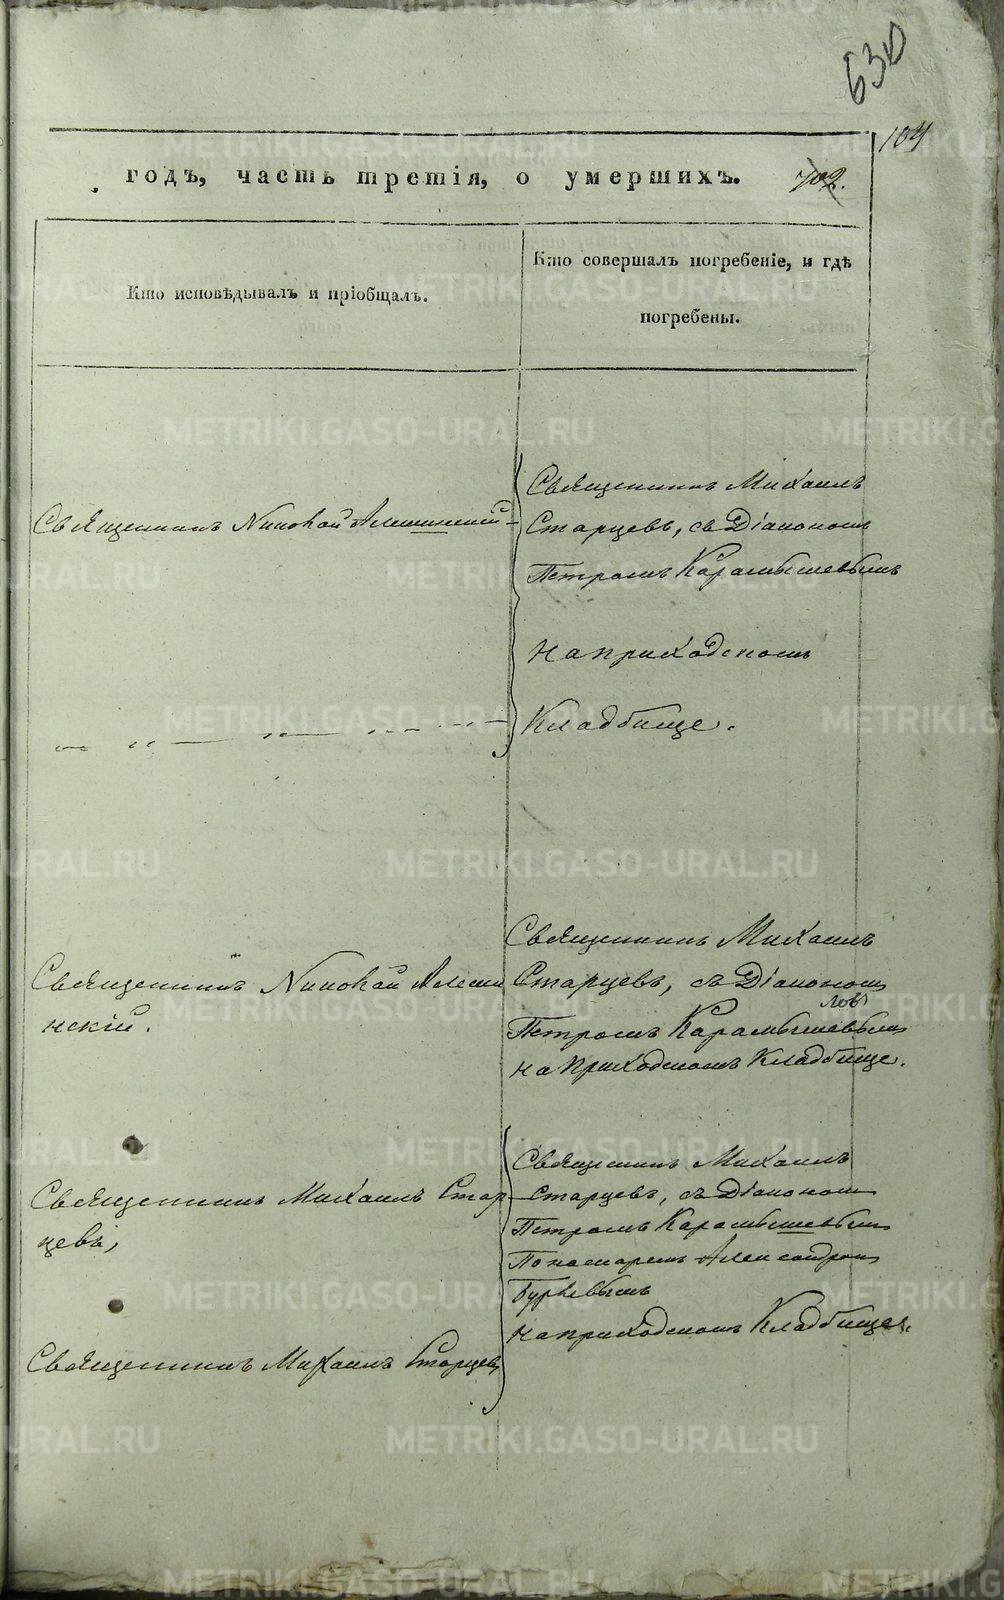 630
104
годъ, часть третія, о умершихъ. 702.
Кто исповѣдывалъ и пріобщалъ.
Кто совершалъ погребеніе, и гдѣ
погребены.
Священникъ Михаилъ
Священникъ Николай
Старцевъ, съ Діакономъ
Петромъ Карамышевымъ
на приходскомъ
Кладбище.
Священникъ Михаилъ
Священникъ Николай
Старцевъ, съ Діакономъ
нскій.
Петромъ Карамышевымъ
на приходскомъ Кладбище.
Священникъ Михаилъ
Священникъ Михаилъ Стар
Старцевъ, съ Діакономъ
цевъ,
Петромъ Карамышевымъ
Пономаремъ Александромъ
на приходскомъ Кладбище.
Священникъ Михаилъ Старцевъ
METRIKI.GASO-URAL.RU